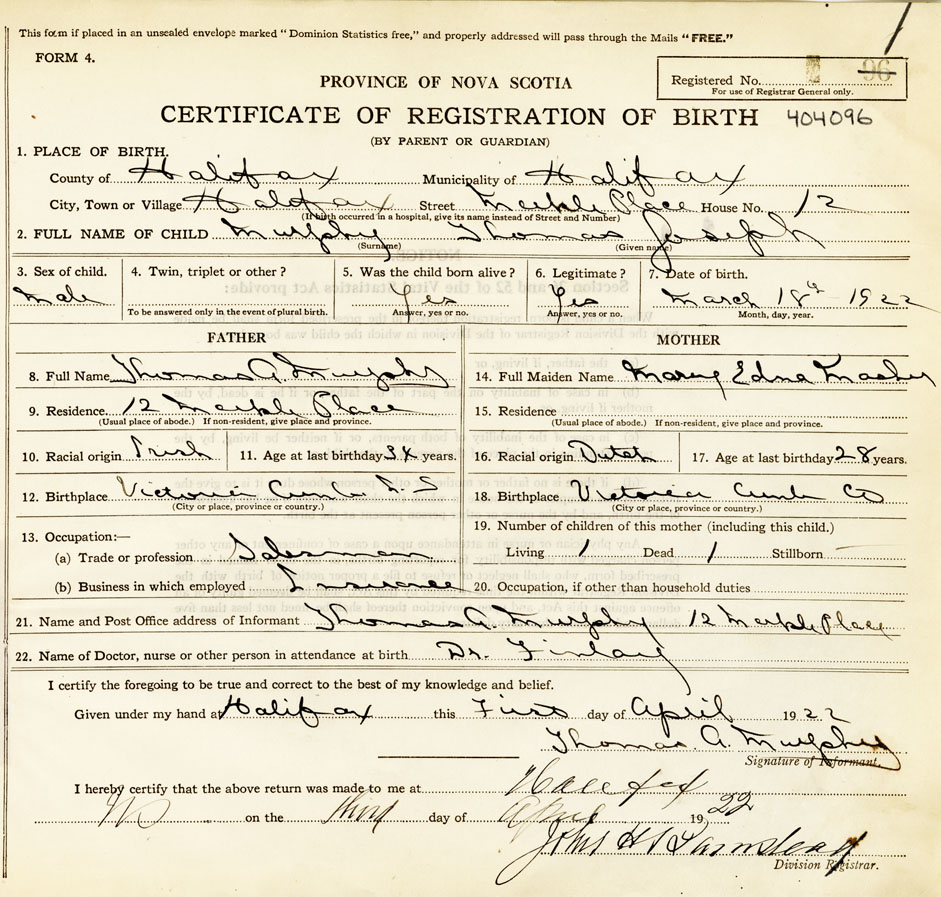 This form if placed in an unsealed envelope marked "Dominion Statistics free," and properly addressed will pass through the Mails "FREE."
FORM 4.
PROVINCE OF NOVA SCOTIA
Registered No. 96
For use of Registrar General only.
CERTIFICATE OF REGISTRATION OF BIRTH 404096
(BY PARENT OR GUARDIAN)
1. PLACE OF BIRTH.
County of Halifax Municipality of Halifax
City, Town or Village Halifax Street Place House No. 12
(If birth occurred in a hospital, give its name instead of Street and Number)
2. FULL NAME OF CHILD Murphy Thomas Joseph
(Surname) (Given name)
3. Sex of child. 4. Twin, triplet or other? 5. Was the child born alive? 6. Legitimate? 7. Date of birth.
Male Yes Yes March 18th 1922
To be answered only in the event of plural birth. Answer, yes or no. Answer, yes or no. Month, day, year.
FATHER MOTHER
8. Full Name Thomas A. Murphy 14. Full Maiden Name Mary Edna
9. Residence 12 Place 15. Residence
(Usual place of abode.) If non-resident, give place and province. (Usual place of abode.) If non-resident, give place and province.
10. Racial origin Irish 11. Age at last birthday 34 years. 16. Racial origin Dutch 17. Age at last birthday 28 years.
12. Birthplace Victoria N.S 18. Birthplace Victoria Co
(City or place, province or country.) (City or place, province or country.)
19. Number of children of this mother (including this child.)
13. Occupation:—
(a) Trade or profession Salesman Living 1 Dead 1 Stillborn —
(b) Business in which employed Insurance 20. Occupation, if other than household duties
21. Name and Post Office address of Informant Thomas A. Murphy 12 Place
22. Name of Doctor, nurse or other person in attendance at birth Dr. Finlay
I certify the foregoing to be true and correct to the best of my knowledge and belief.
Given under my hand at Halifax this First day of April 1922
Thomas A. Murphy
Signature of Informant.
I hereby certify that the above return was made to me at Halifax
NS on the third day of April 1922
John H
Division Registrar.